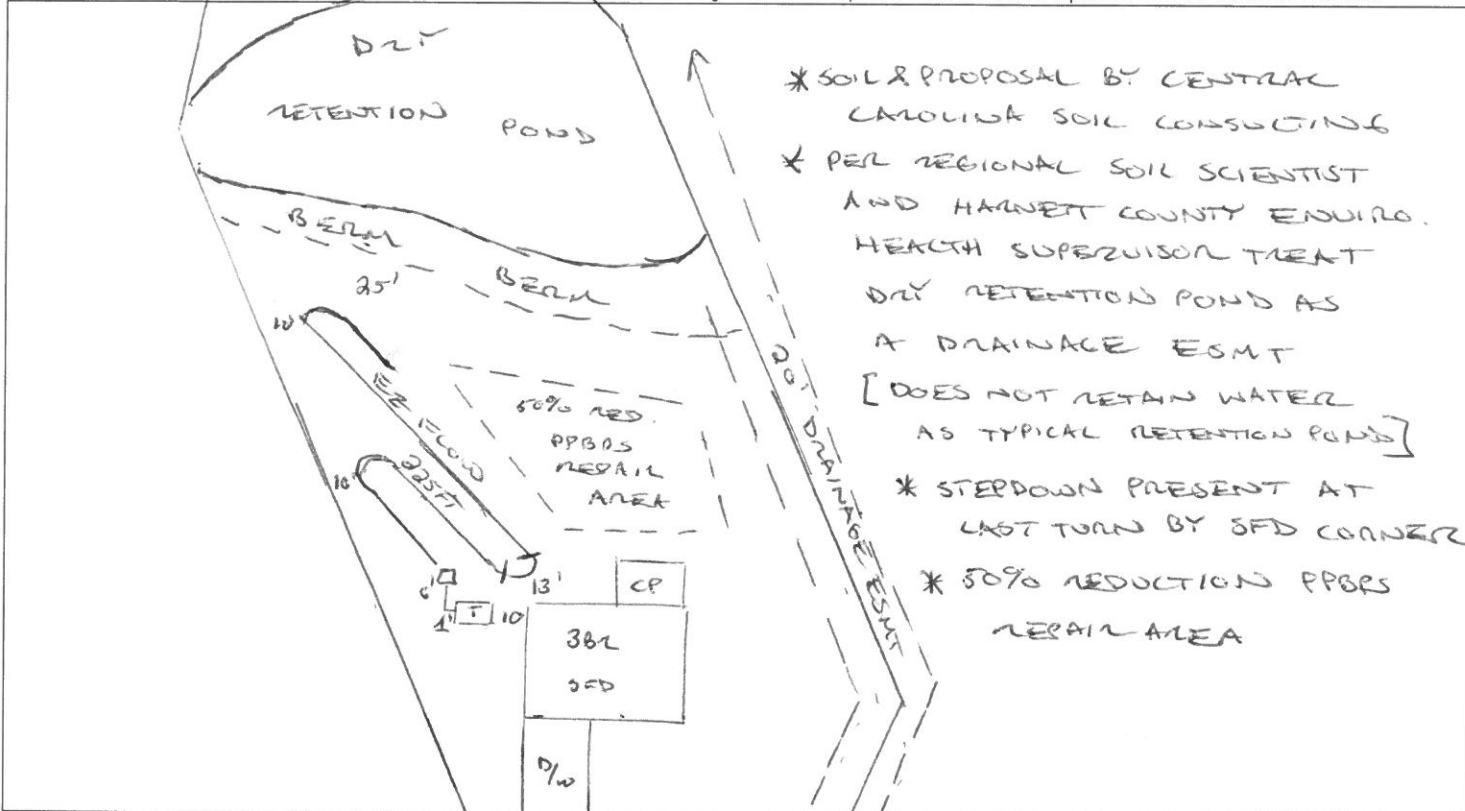 DRY
RETENTION POND
BERM
BERM
25'
10'
EZ FLOW
225ft
10'
50% RED.
PPBPS
REPAIR
AREA
20' DRAINAGE ESMT
6'
13'
1'
T
10
CP
3BR
SFD
D/W
* SOIL & PROPOSAL BY CENTRAL
CAROLINA SOIL CONSULTING
* PER REGIONAL SOIL SCIENTIST
AND HARNETT COUNTY ENVIRO.
HEALTH SUPERVISOR TREAT
DRY RETENTION POND AS
A DRAINAGE ESMT
[DOES NOT RETAIN WATER
AS TYPICAL RETENTION POND]
* STEPDOWN PRESENT AT
LAST TURN BY SFD CORNER
* 50% REDUCTION PPBPS
REPAIR AREA